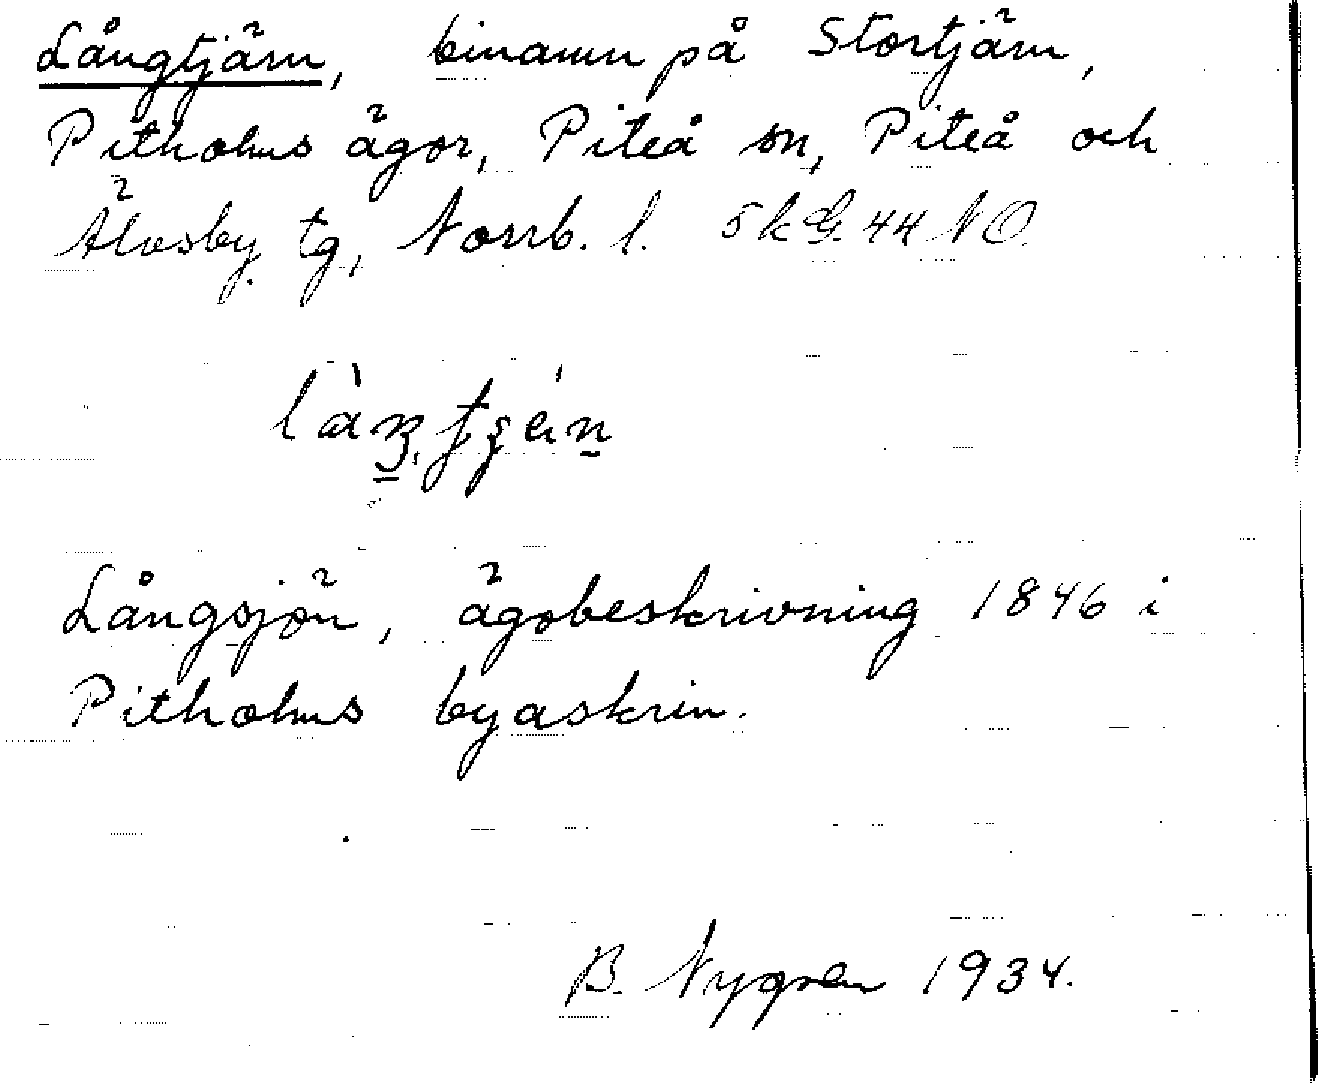 Långtjärn, binamn på Stortjärn,
Pitholms ägor, Piteå sn, Piteå och
Älvsby tg, Norrb. l. 5kG. 44 NO.
Långsjön, ägobeskrivning 1846 i
Pitholms byaskrin.
B. Nygren 1934.